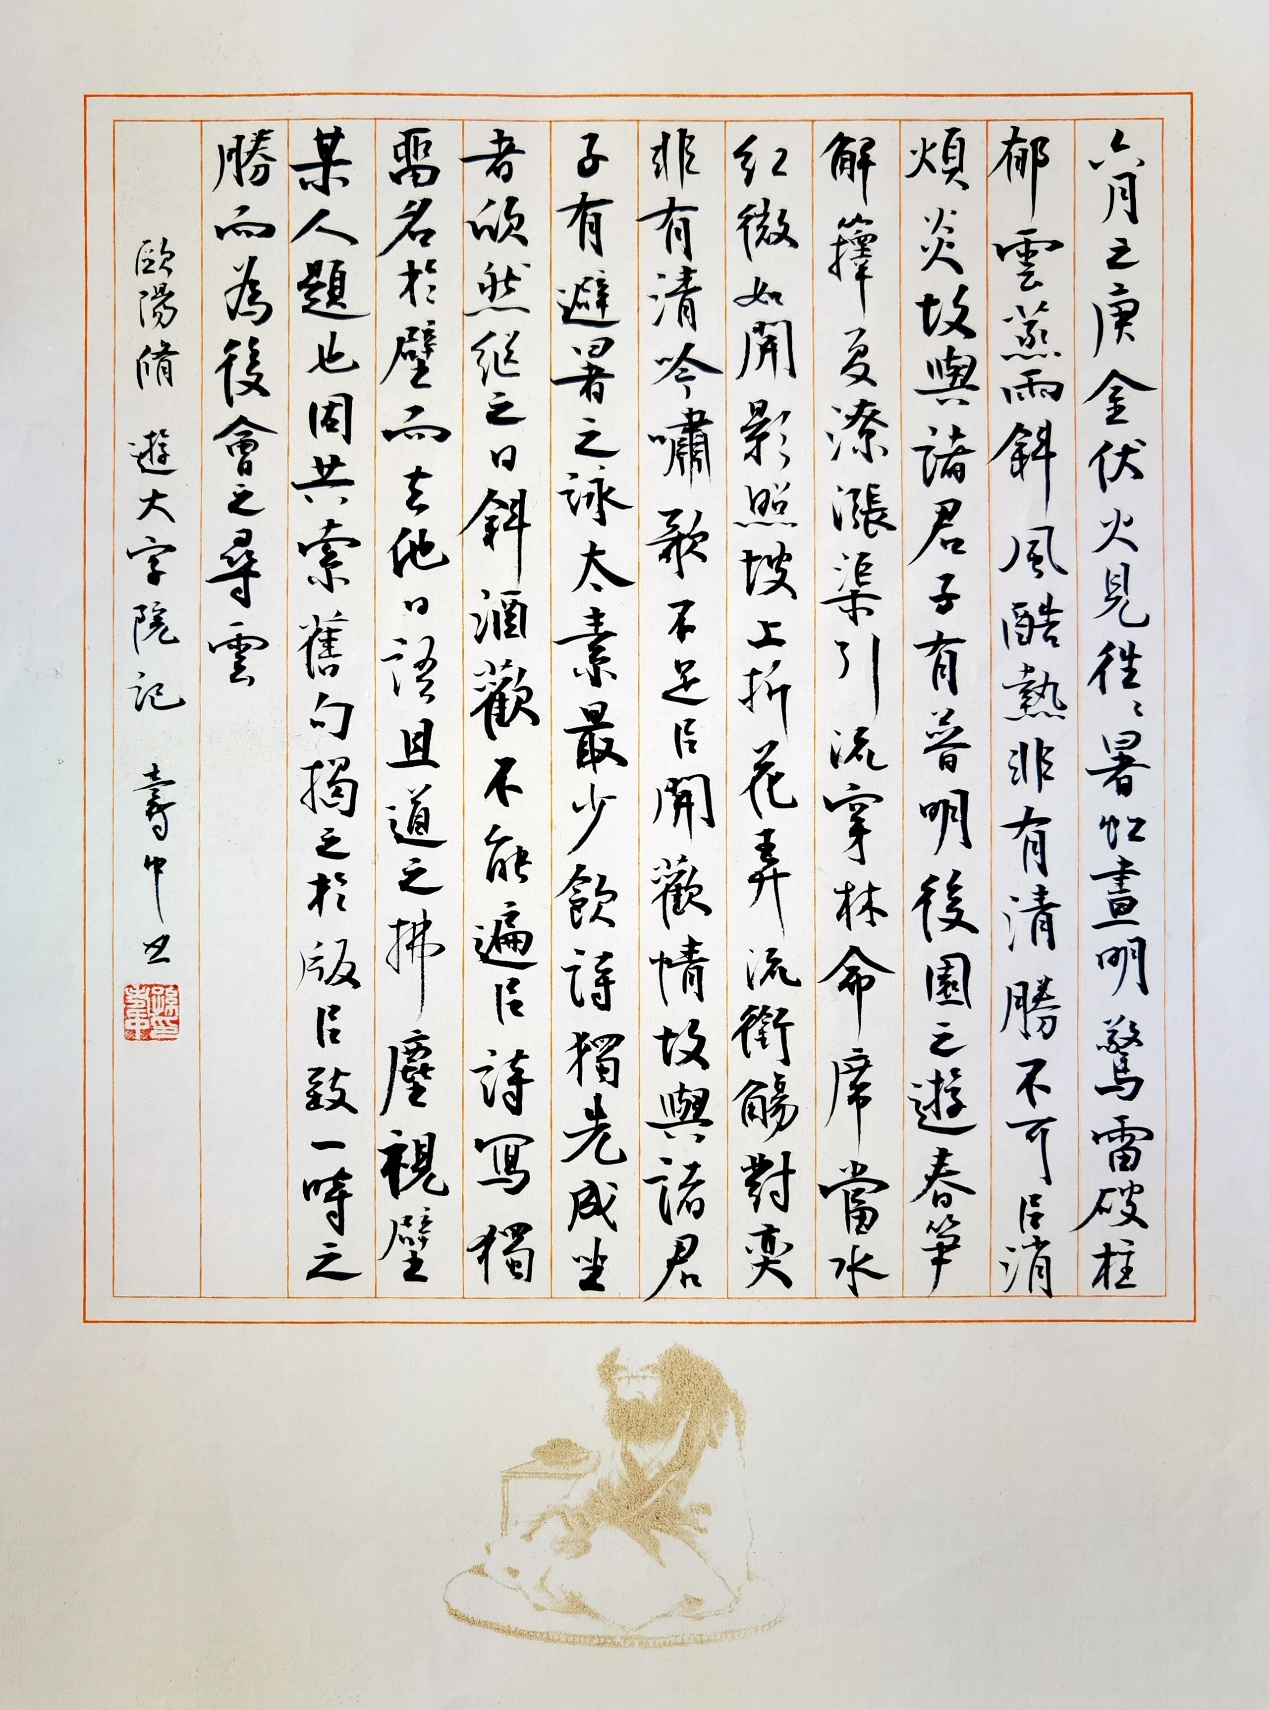 六月之庚金伏火見往〻暑虹晝明驚雷破柱
郁雲蒸雨斜風酷熱非有清勝不可以消
煩炎故與諸君子有普明後園之遊春笋
解籜夏潦漲渠引流穿林命席當水
紅微如開影照坡上折花弄流銜觴對奕
非有清吟嘯歌不足以開歡情故與諸君
子有避暑之詠太素最少飲詩獨先成坐
者欣然繼之日斜酒歡不能遍以詩寫獨
留名於壁而去他日語且道之拂塵視壁
某人題也因共索舊句揭之於版以致一時之
勝而為後會之尋雲
歐陽脩 遊大字院記 壽中书
孫印壽中